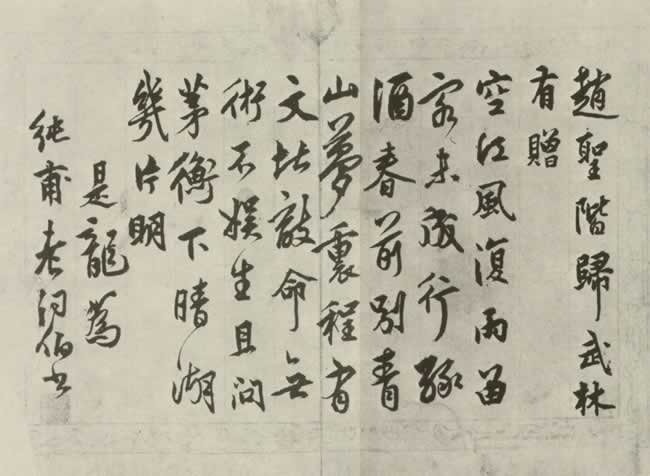 趙聖階歸武林
有贈
空江風復雨留
客未成行綠
酒春前別青
山夢裏程有
文堪敵命無
術不娛生且問
茅衡下晴湖
幾片明
是龍為
純甫老詞伯書